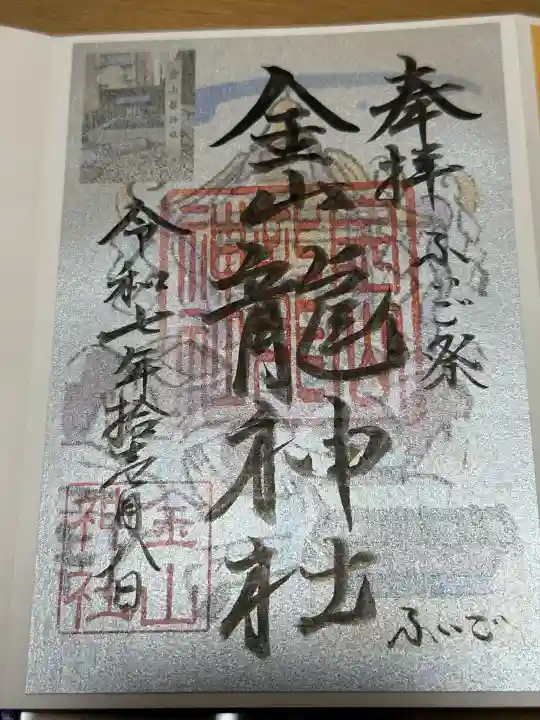 奉拝 ふいご祭
金山龍神社
令和七年拾壱月八日
金山
神社
ふいご